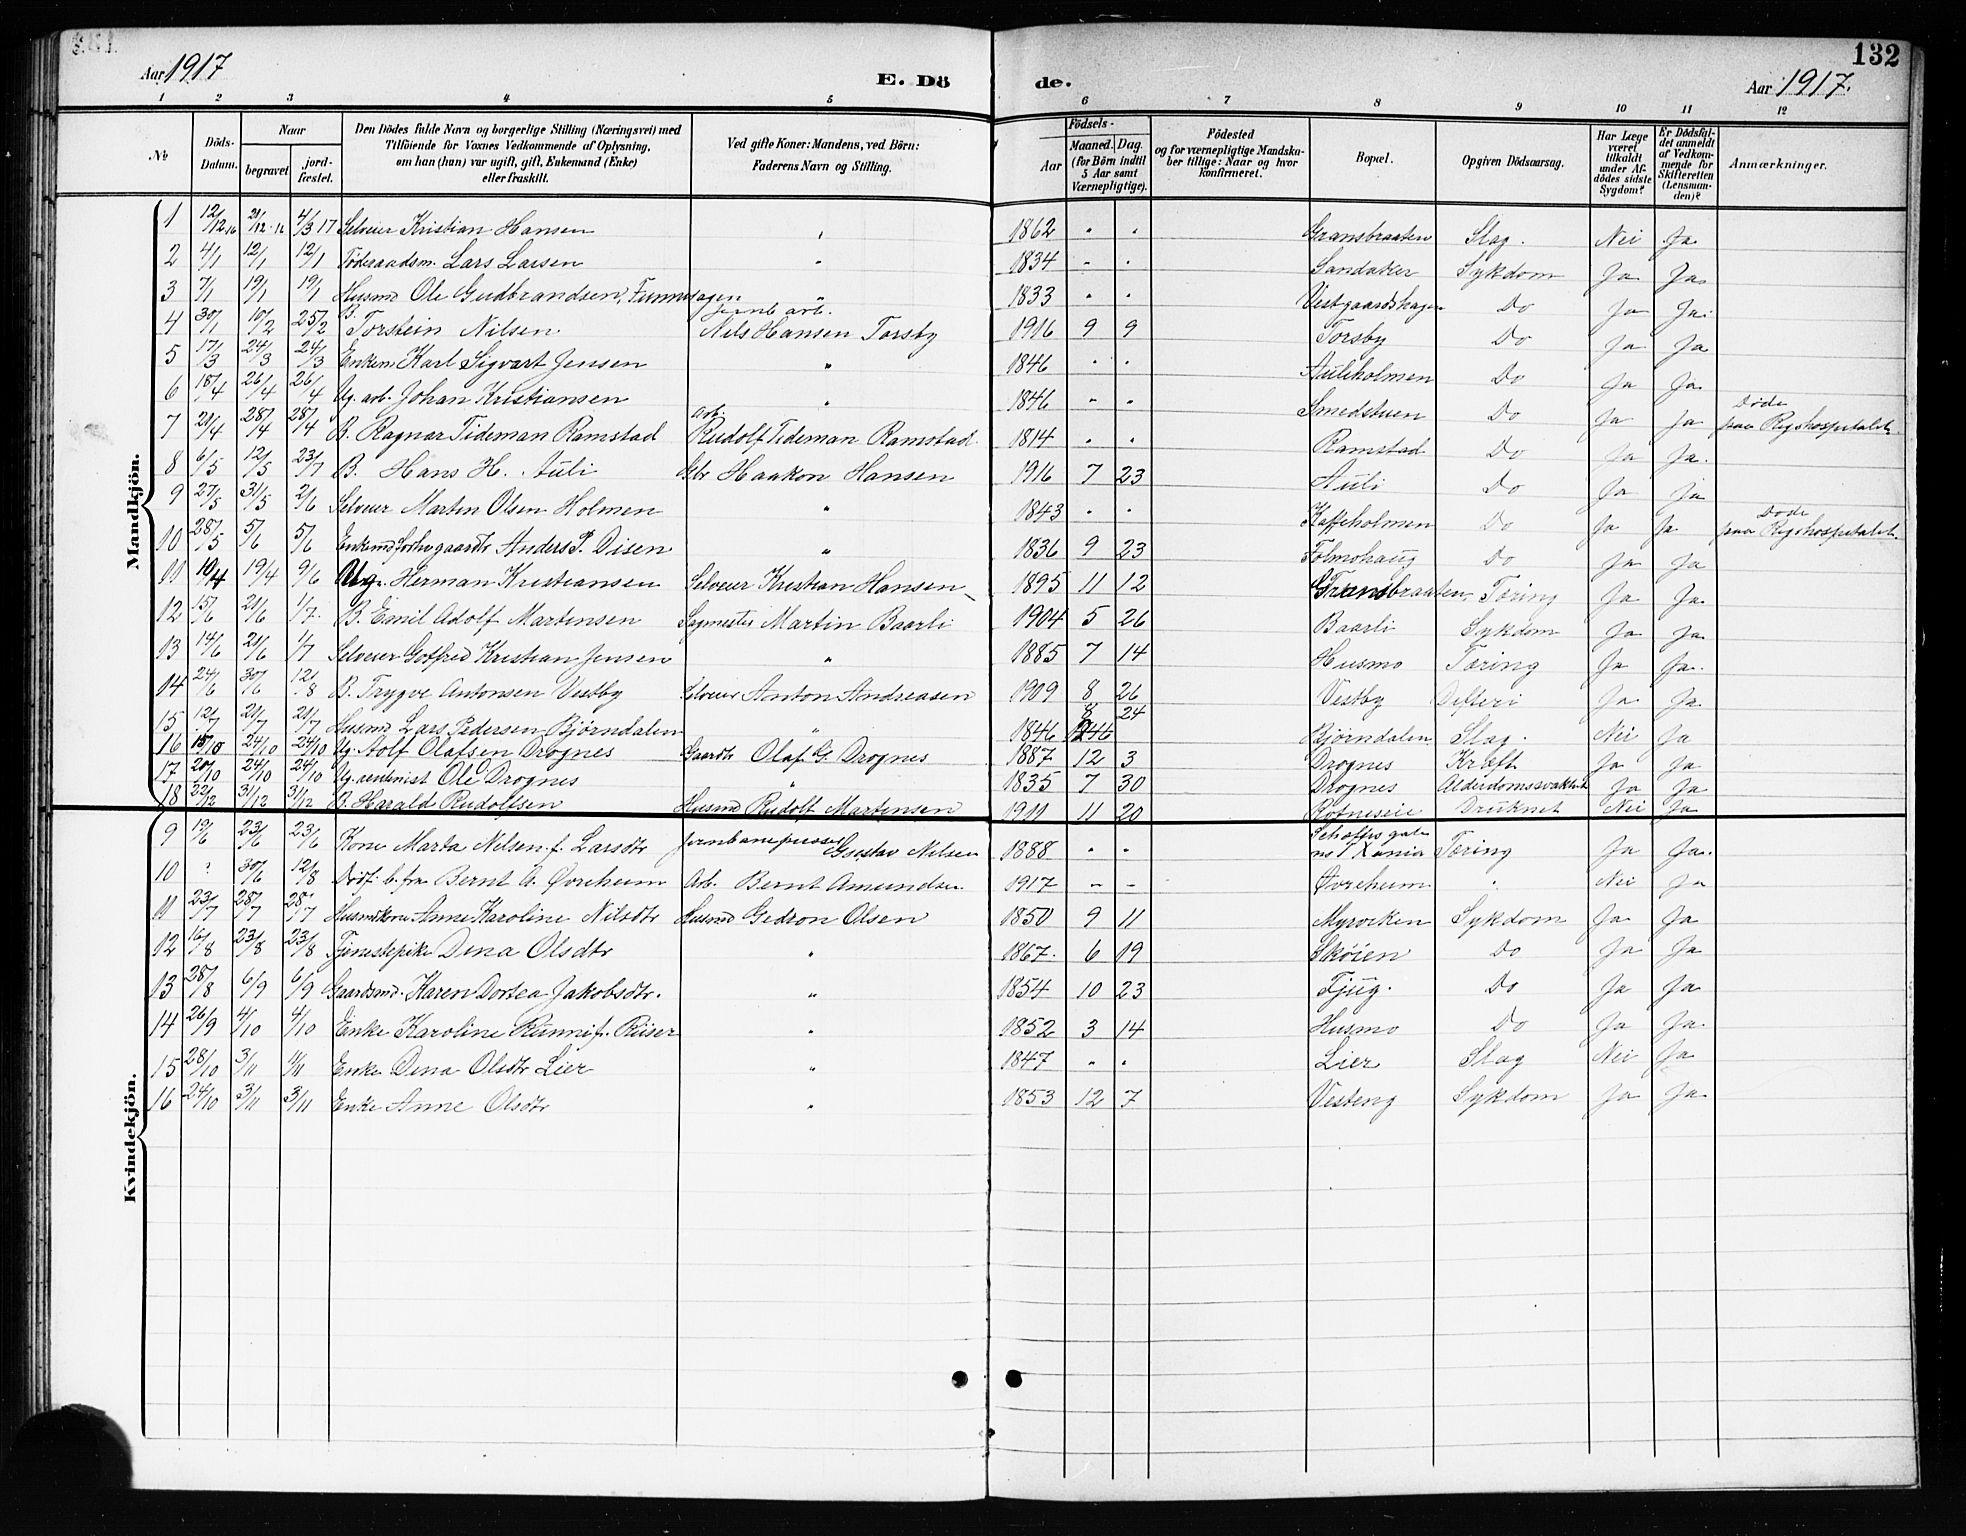 132
Aar 1917
E. Dö de.
Aar 1917.
1 2 3 4 5 6 7 8 9 10 11 12
№ | Döds-Datum. | Naar begravet | jord-fæstet. | Den Dödes fulde Navn og borgerlige Stilling (Næringsvei) med Tilföiende for Voxnes Vedkommende af Oplysning, om han (hun) var ugift, gift, Enkemand (Enke) eller fraskilt. | Ved gifte Koner: Mandens, ved Börn: Faderens Navn og Stilling. | Födsels- Aar | Maaned. Dag. (for Börn indtil 5 Aar samt Værnepligtige). | Födested og for værnepligtige Mandskaber tillige: Naar og hvor konfirmeret. | Bopæl. | Opgiven Dödsaarsag. | Har Læge været tilkaldt under Afdödes sidste Sygdom? | Er Dödsfaldet anmeldt af Vedkommende for Skifteretten (Lensmanden)? | Anmærkninger.
Mandkjön.
1 12/12.16 21/12.16 4/3 17 Selveier Kristian Hansen " 1862 " " Gransbraaten Slag. Nei Ja
2 4/1 12/1 12/1 Föderaadsm. Lars Larsen " 1834 " " Sandaker Sykdom Ja Ja
3 7/1 19/1 19/1 Husmd Ole Gudbrandsen, " 1833 " " Vestgaardshagen Do Ja Ja
4 30/1 10/2 25/2 B. Torstein Nilsen. Jernb arb. Nils Hansen Torsby 1916 9 9 Torsby Do Ja Ja
5 17/3 24/3 24/3 Enkem. Karl Sigvart Jensen " 1846 " " Auliholmen Do Ja Ja
6 18/4 26/4 26/4 Ug. arb. Johan Kristiansen " 1846 " " Smedstuen Do Ja Ja Döde paa Rigshospitalet
7 21/4 28/4 28/4 B. Ragnar Tideman Ramstad arb. Rudolf Tideman Ramstad 1814 " " Ramstad Do Ja Ja
8 6/5 12/5 23/7 B. Hans H. Auli Gbr Haakon Hansen 1916 7 23 Auli Do Ja Ja
9 27/5 31/5 2/6 Selveier Martin Olsen Holmen " 1843 " " Kaffeholmen Do Ja Ja Döde paa Rigshospitalet
10 28/5 5/6 5/6 Enkemd forhv gaardbr Anders P. Disen " 1836 9 23 Folmohaug Do Ja Ja
11 10/4 19/4 9/6 Ug. Herman Kristiansen Selveier Kristian Hansen 1895 11 12 Gransbraaten Tæring Ja Ja
12 15/6 21/6 1/7 B. Emil Adolf Martinsen Sagmester Martin Baarli 1904 5 26 Baarli Sykdom Ja Ja
13 14/6 21/6 1/7 Selveier Gotfred Kristian Jensen " 1885 7 14 Husmo Tæring Ja Ja
14 24/6 30/6 12/8 B. Trygve Antonsen Vestby Selveier Anton Andreasen 1909 8 26 Vestby Difteri Ja Ja
15 12/7 21/7 21/7 Husmd Lars Pedersen Bjørndalen " 1846 8 24 Bjørndalen Slag. Nei Ja
16 15/10 24/10 24/10 Ug. Adolf Olafsen Drognes Gaardbr Olaf G. Drognes 1887 12 3 Drognes Kræft Ja Ja
17 20/10 24/10 24/10 Ug. rentenist Ole Drognes " 1835 7 30 Drognes Alderdomssvakhet Ja Ja
18 22/12 31/12 31/12 B. Harald Rudolfsen Husmd Rudolf Martinsen 1911 11 20 Rotneseie Druknet Nei Ja
Kvindekjön.
9 19/6 23/6 23/6 Kone Marta Nilsen f. Larsdtr Jernbanepusser Gustav Nilsen 1888 " " Schøffs gate no 1 Xania Tæring Ja Ja
10 ? 30/6 12/8 Dødf. b. fra Bernt A. Øvreheim Arb. Bernt Amundsen 1917 " " Øvreheim " Nei Ja
11 23/7 28/7 28/7 Husmdkone Anne Karoline Nilsdtr Husmd Gedeon Olsen 1850 9 11 Myrviken Sykdom Ja Ja
12 16/8 23/8 23/8 Tjenestepike Dina Olsdtr " 1867 6 19 Skøien Do Ja Ja
13 28/8 6/9 6/9 Gaardmd. Karen Dortea Jakobsdtr. " 1854 10 23 Fjug. Do Ja Ja
14 26/9 4/10 4/10 Enke Karoline Runni f. Riiser " 1852 3 14 Husmo Do Ja Ja
15 28/10 3/11 11/11 Enke Dina Olsdtr Lier " 1847 " " Lier Slag Nei Ja
16 24/10 3/11 3/11 Enke Anne Olsdtr " 1853 12 7 Vesteng Sykdom Ja Ja